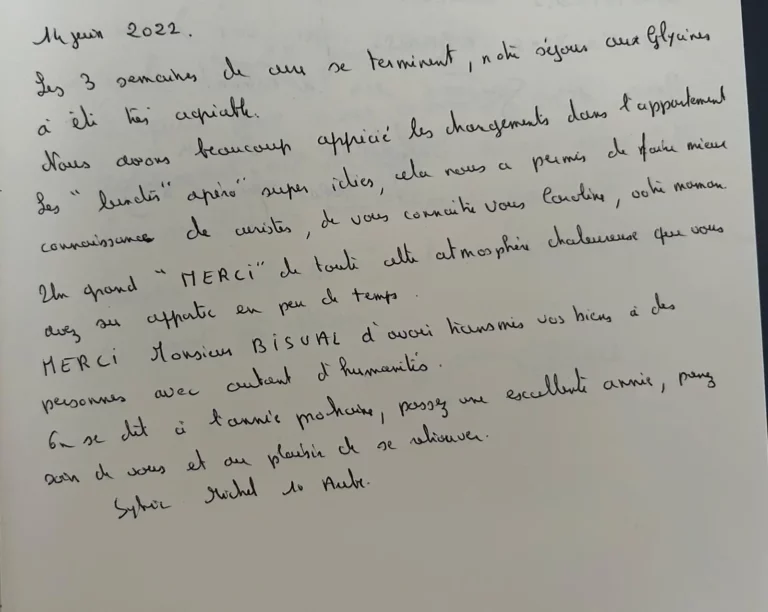 14 juin 2022.
Les 3 semaines de cure se terminent, notre séjour aux Glycines
a été très agréable.
Nous avons beaucoup apprécié les changements dans l'appartement
Les "lundis" "apéro" super idées, cela nous a permis de faire mieux
connaissance de curistes, de vous connaitre vous Caroline, votre maman
Un grand "MERCi" de toute cette atmosphère chaleureuse que vous
avez su apporter en peu de temps.
MERCi Monsieur BiSUAL d'avoir transmis vos biens à des
personnes avec autant d'humanités.
On se dit à l'année prochaine, passez une excellente année, prenez
soin de vous et au plaisir de se retrouver.
Sylvie Michel 10 Aube.